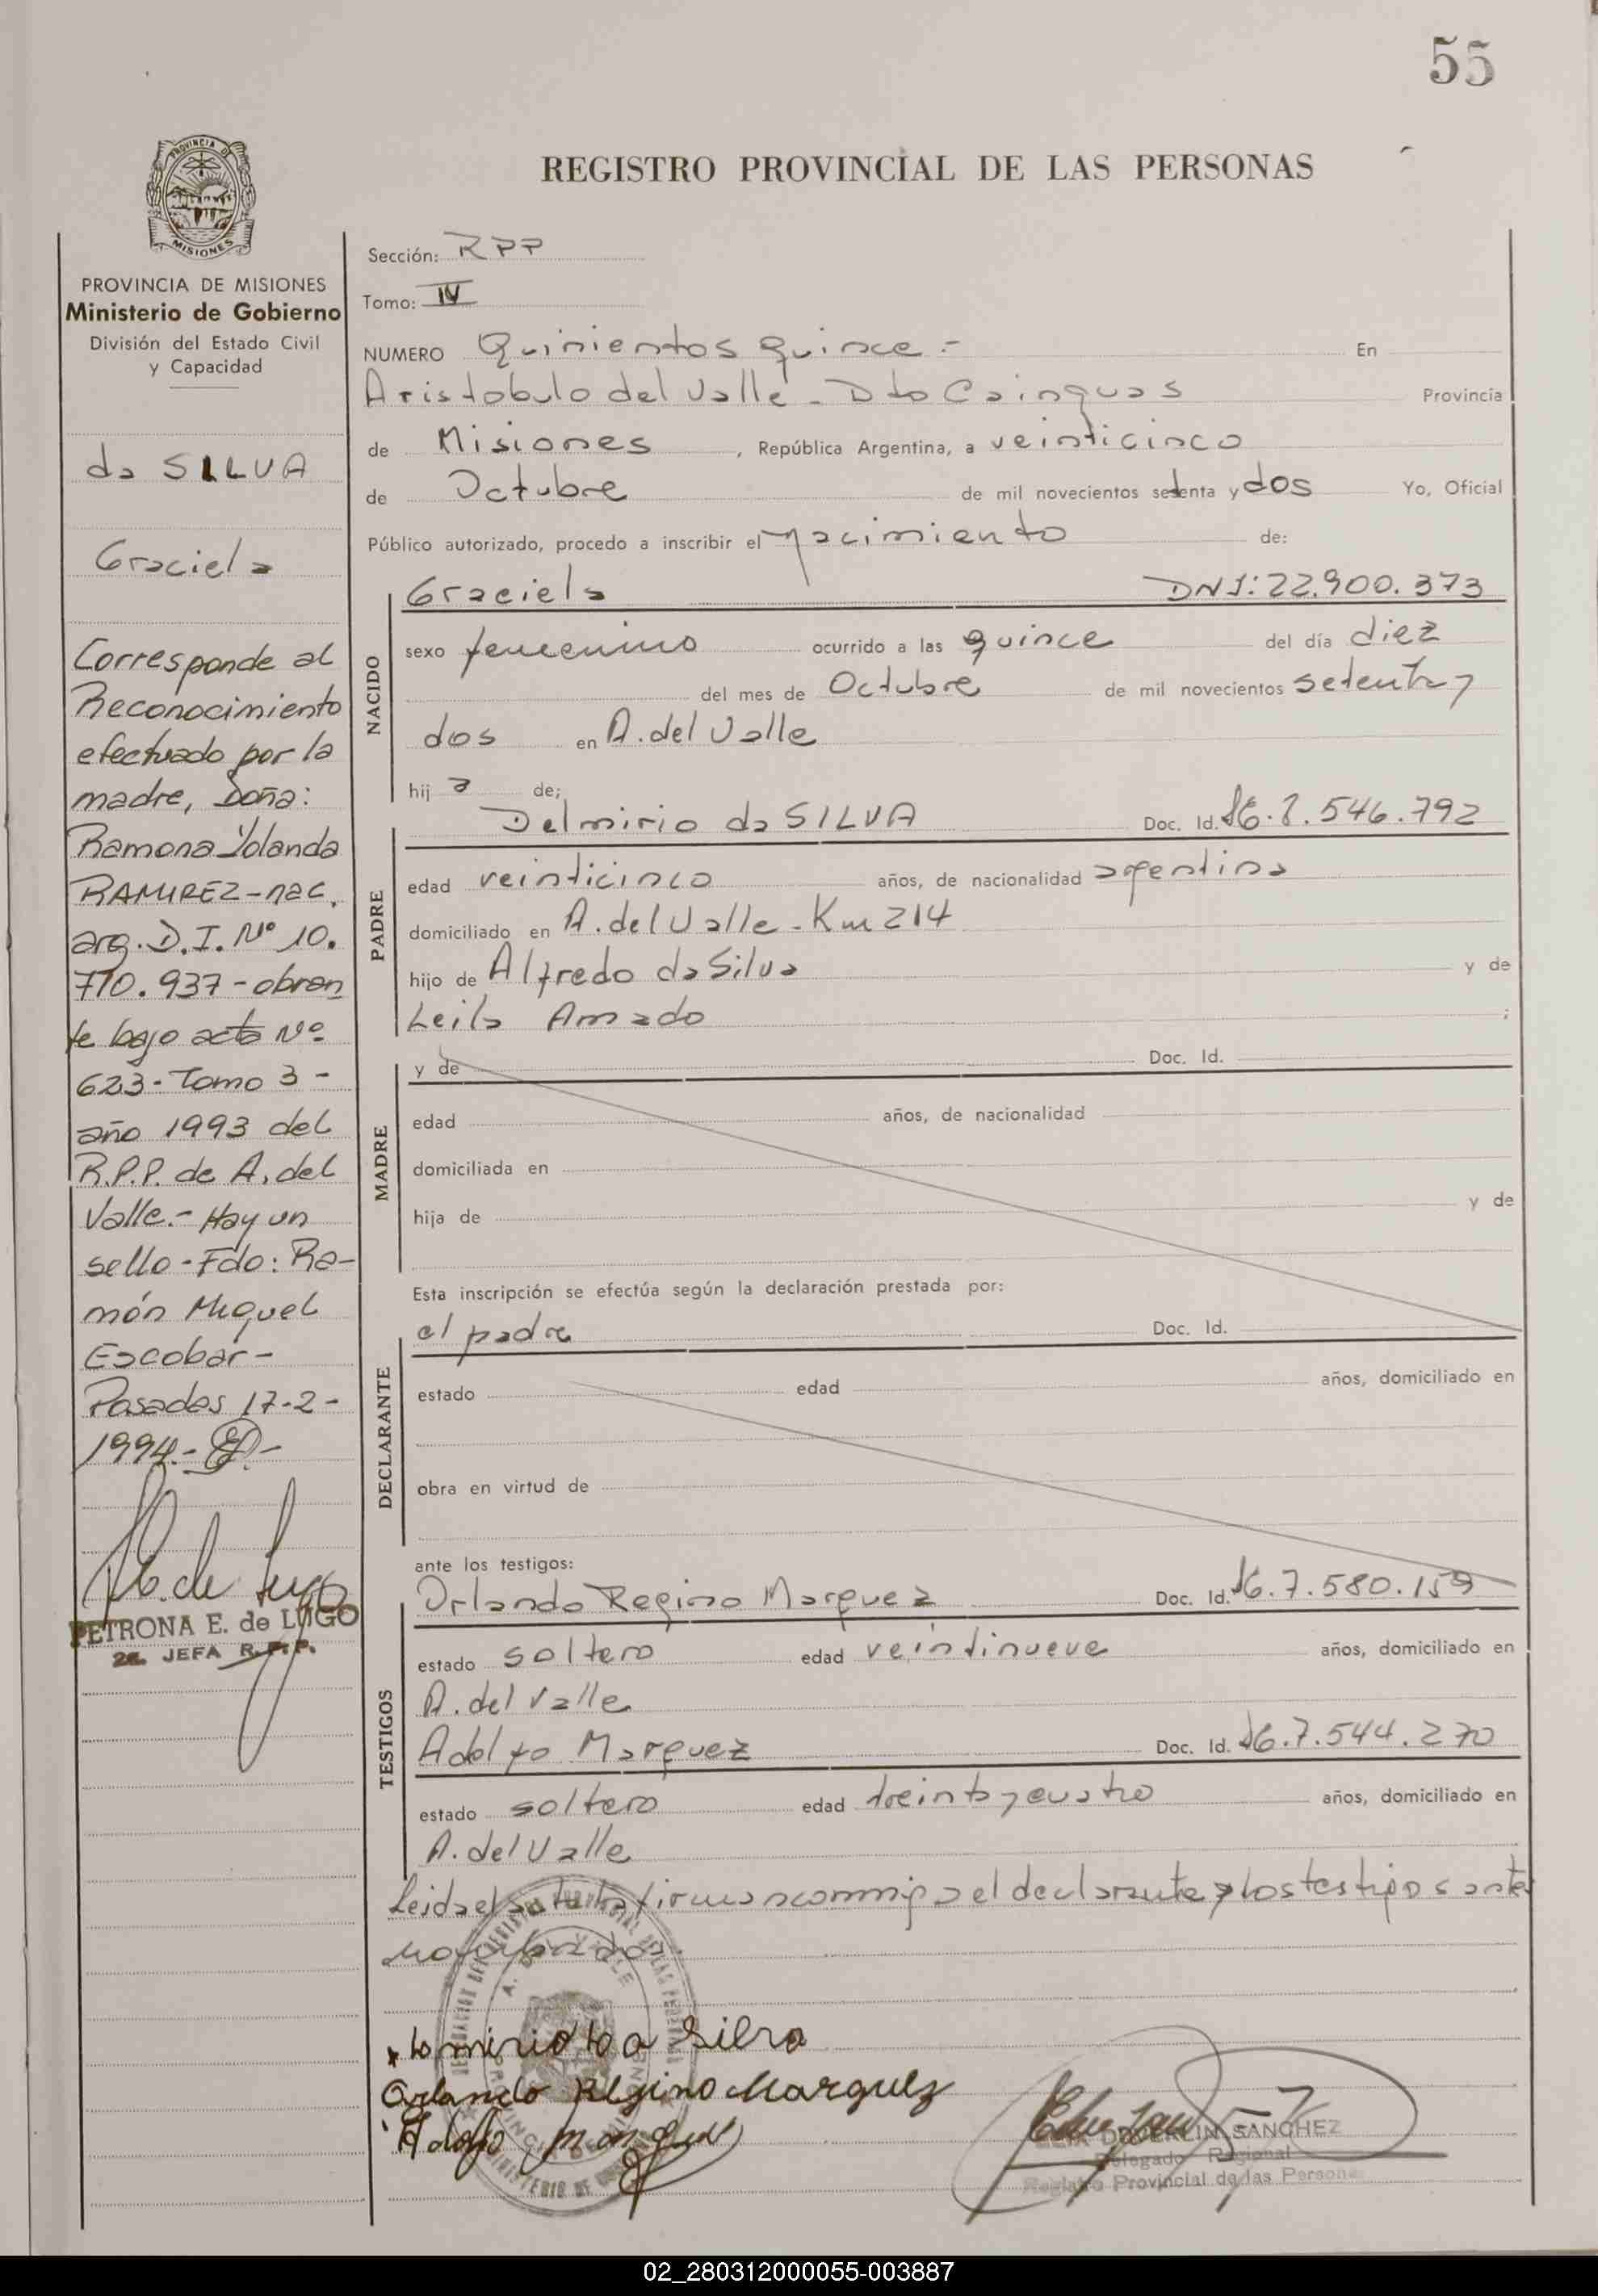 55
REGISTRO PROVINCIAL DE LAS PERSONAS
PROVINCIA DE
MISIONES
PROVINCIA DE MISIONES
Ministerio de Gobierno
División del Estado Civil
y Capacidad
da SILVA
Graciela
Corresponde al
Reconocimiento
efectuado por la
madre, Doña:
Ramona Yolanda
RAMIREZ-nac.
arg. D.I. Nº 10.
710.937-obran
te bajo acta Nº
623-Tomo 3-
año 1993 del
R.P.P. de A. del
Valle.- Hay un
sello-Fdo: Ra-
món Miguel
Escobar-
Posadas 17-2-
1994.-
PETRONA E. de LUGO
2a. JEFA R.P.P.
Sección: RPP
Tomo: IV
NUMERO Quinientos quince.- En
Aristobulo del Valle - Dto Cainguas Provincia
de Misiones, República Argentina, a veinticinco
de Octubre de mil novecientos setenta y dos Yo, Oficial
Público autorizado, procedo a inscribir el nacimiento de:
NACIDO
Graciela DNI: 22.900.373
sexo femenino ocurrido a las quince del día diez
del mes de Octubre de mil novecientos setenta y
dos en A. del Valle
hij a de;
PADRE
Delmirio da SILVA Doc. Id. 8.546.792
edad veinticinco años, de nacionalidad argentina
domiciliado en A. del Valle - Km 214
hijo de Alfredo da Silva y de
Leila Amado ;
MADRE
y de Doc. Id.
edad años, de nacionalidad
domiciliada en
hija de y de
Esta inscripción se efectúa según la declaración prestada por:
DECLARANTE
el padre Doc. Id.
estado edad años, domiciliado en
obra en virtud de
ante los testigos:
TESTIGOS
Orlando Regino Marquez Doc. Id. 7.580.159
estado soltero edad veintinueve años, domiciliado en
A. del Valle
Adolfo Marquez Doc. Id. 7.544.270
estado soltero edad treinta y cuatro años, domiciliado en
A. del Valle
Leida el acta la firman conmigo el declarante y los testigos antes
Silva
Orlando Regino Marquez
Adolfo
SANCHEZ
Delegado Regional
Registro Provincial de las Personas
02_280312000055-003887